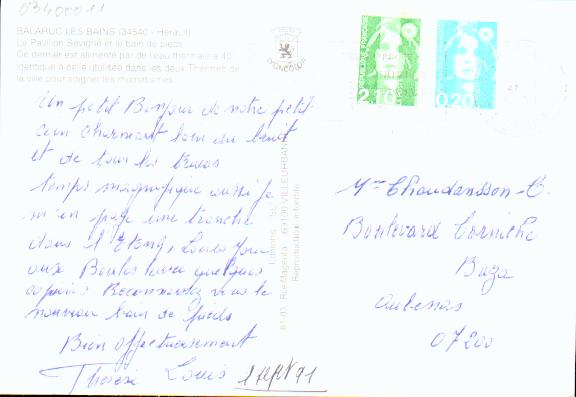 03400011
BALARUC LES BAINS (34540 - Hérault)
Le Pavillon Sévigné et le bain de pieds.
Ce dernier est alimenté par de l'eau thermale à 40
identique à celle utilisée dans les deux Thermes de
la ville pour soigner les rhumatismes.
LYONCOLOR
REPUBLIQUE FRANÇAISE
2,10
0,20
Un petit Bonjour de notre petit
coin charmant loin du bruit
et de tous les
temps magnifique aussi je
m'en paye une tranche
dans l'Etang, Louis joue
aux Boules avec quelques
copains Reconnaissez vous le
nouveau bain de pieds
Bien affectueusement
Thérèse Louis
1 sept 91
Editions SL
81-83, Rue Magenta 69100 VILLEURBANNE
Reproduction interdite
Mme Chaudensson
Boulevard Corniche
Baza
Aubenas
07200